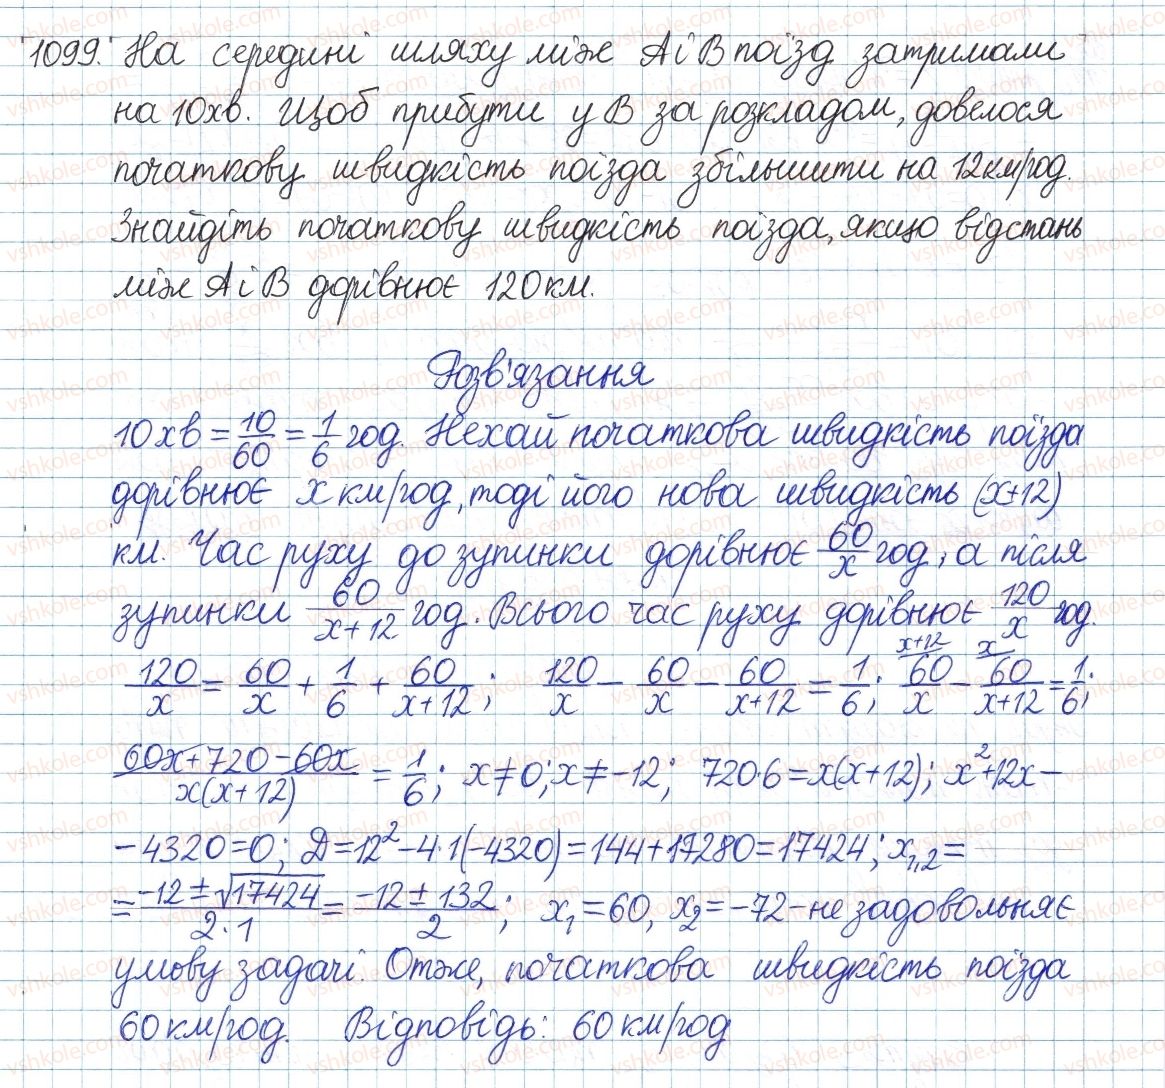 1099. На середині шляху між А і В поїзд затримали
на 10хв. Щоб прибути у В за розкладом, довелося
початкову швидкість поїзда збільшити на 12км/год.
Знайдіть початкову швидкість поїзда, якщо відстань
між А і В дорівнює 120км.
Розв'язання
10хв = 10/60 = 1/6 год. Нехай початкова швидкість поїзда
дорівнює х км/год, тоді його нова швидкість (х+12)
км. Час руху до зупинки дорівнює 60/х год, а після
зупинки 60/(х+12) год. Всього час руху дорівнює 120/х год.
120/х = 60/х + 1/6 + 60/(х+12); 120/х − 60/х − 60/(х+12) = 1/6; х+12/ 60/х − х/ 60/(х+12) = 1/6;
(60х+720−60х)/(х(х+12)) = 1/6; х≠0; х≠−12; 720·6=х(х+12); х²+12х−
−4320=0; Д=12²−4·1(−4320)=144+17280=17424; х₁,₂=
= (−12±√17424)/(2·1) = (−12±132)/2; х₁=60, х₂=−72 – не задовольняє
умову задачі. Отже, початкова швидкість поїзда
60км/год. Відповідь: 60км/год
vshkole.com